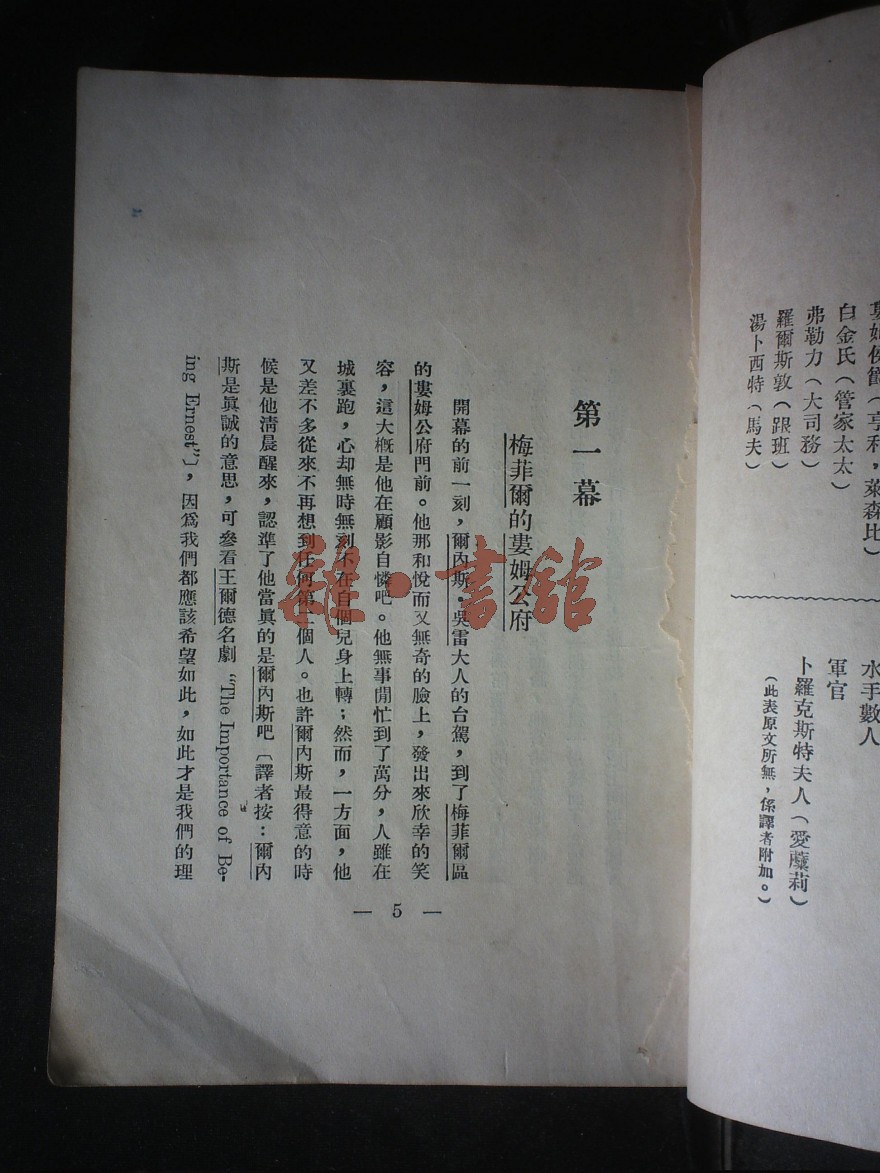 婁姆侯爵(亨利,萊森比)
白金氏(管家太太)
弗勒力(大司務)
羅爾斯敦(跟班)
湯卜西特(馬夫)
水手數人
軍官
卜羅克斯特夫人(愛蘼莉)
(此表原文所無,係譯者附加。)
第一幕
梅菲爾的婁姆公府
開幕的前一刻,爾內斯·吳雷大人的台駕,到了梅菲爾區
的婁姆公府門前。他那和悅而又無奇的臉上,發出來欣幸的笑
容,這大概是他在顧影自憐吧。他無事閒忙到了萬分,人雖在
城裏跑,心却無時無刻不在自個兒身上轉;然而,一方面,他
又差不多從來不再想到任何第二個人。也許爾內斯最得意的時
候是他淸晨醒來,認準了他當眞的是爾內斯吧〔譯者按:爾內
斯是眞誠的意思,可參看王爾德名劇 “The Importance of Be-
ing Ernest”〕,因爲我們都應該希望如此,如此才是我們的理
— 5 —
雜·書館